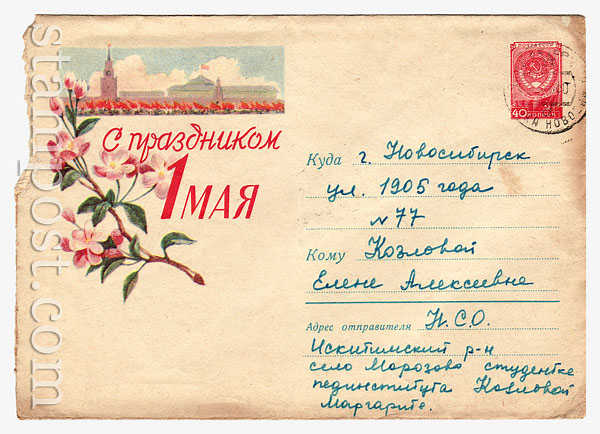 С праздником
1 МАЯ
40 КОПЕЕК
Куда г. Новосибирск
ул. 1905 года
№ 77
Кому Козловой
Елене Алексеевне
Адрес отправителя Н.С.О.
Искитимский р-н
село Морозово студентке
пединститута Козловой
Маргарите.
stampost.com